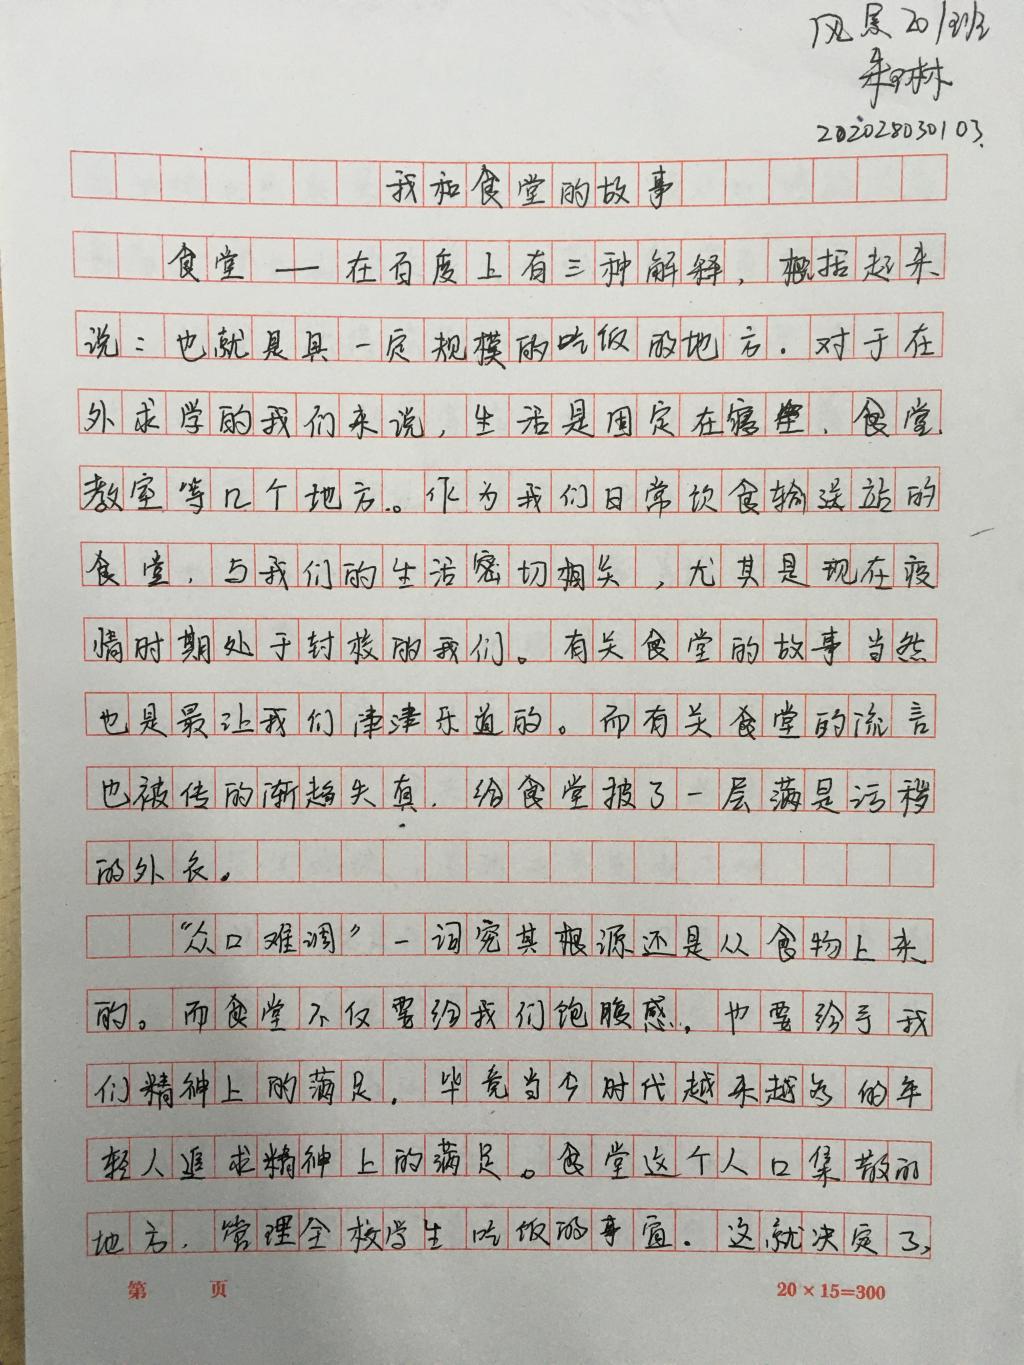 风景201班
朱琳
202028030103
我和食堂的故事
食堂——在百度上有三种解释，概括起来
说：也就是具一定规模的吃饭的地方．对于在
外求学的我们来说，生活是固定在寝室、食堂、
教室等几个地方。作为我们日常饮食输送站的
食堂，与我们的生活密切相关，尤其是现在疫
情时期处于封校的我们。有关食堂的故事当然
也是最让我们津津乐道的。而有关食堂的流言
也被传的渐趋失真，给食堂披了一层满是污秽
的外衣。
“众口难调”一词究其根源还是从食物上来
的。而食堂不仅要给我们饱腹感，也要给予我
们精神上的满足，毕竟当今时代越来越多的年
轻人追求精神上的满足。食堂这个人口集散的
地方，管理全校学生吃饭的事宜．这就决定了，
第 页
20×15=300